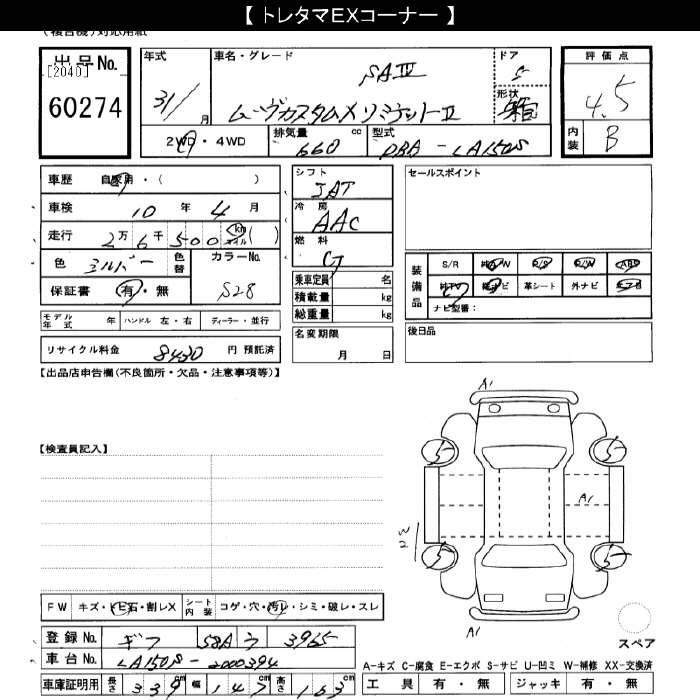 【 トレタマEXコーナー 】
(複合機)対応用紙
出品No.
[2040]
60274
年式 車名・グレード ドア 評価点
31/ 月 SAIII 5 4.5
ムーヴカスタムXリミテッドII 形状
2WD・4WD 排気量 660 cc 型式 DBA-LA150S 内装 B
車歴 自家用・( ) シフト IAT セールスポイント
車検 10年 4月 冷房 AAC
走行 2万6千500 (km マイル) 燃料 G
色 シルバー 色替 カラーNo. S28
保証書 有・無 乗車定員 名
積載量 kg
総重量 kg
装備品 S/R A/W P/S P/W ABS
革シート 外ナビ
ナビ型番:
モデル年式 年 ハンドル 左・右 ディーラー・並行 名変期限 月 日 後日品
リサイクル料金 8430 円 預託済
【出品店申告欄(不良箇所・欠品・注意事項等)】
A1
5 5
【検査員記入】
A1
5 5
FW キズ・トビ石・割レX シート内装 コゲ・穴・汚レ・シミ・破レ・スレ
A1
スペア
登録No. ギフ 58A ウ 3965
車台No. LA150S-2000394
A-キズ C-腐食 E-エクボ S-サビ U-凹ミ W-補修 XX-交換済
車庫証明用 長さ 339 cm 幅 147 cm 高さ 163 cm 工具 有・無 ジャッキ 有・無